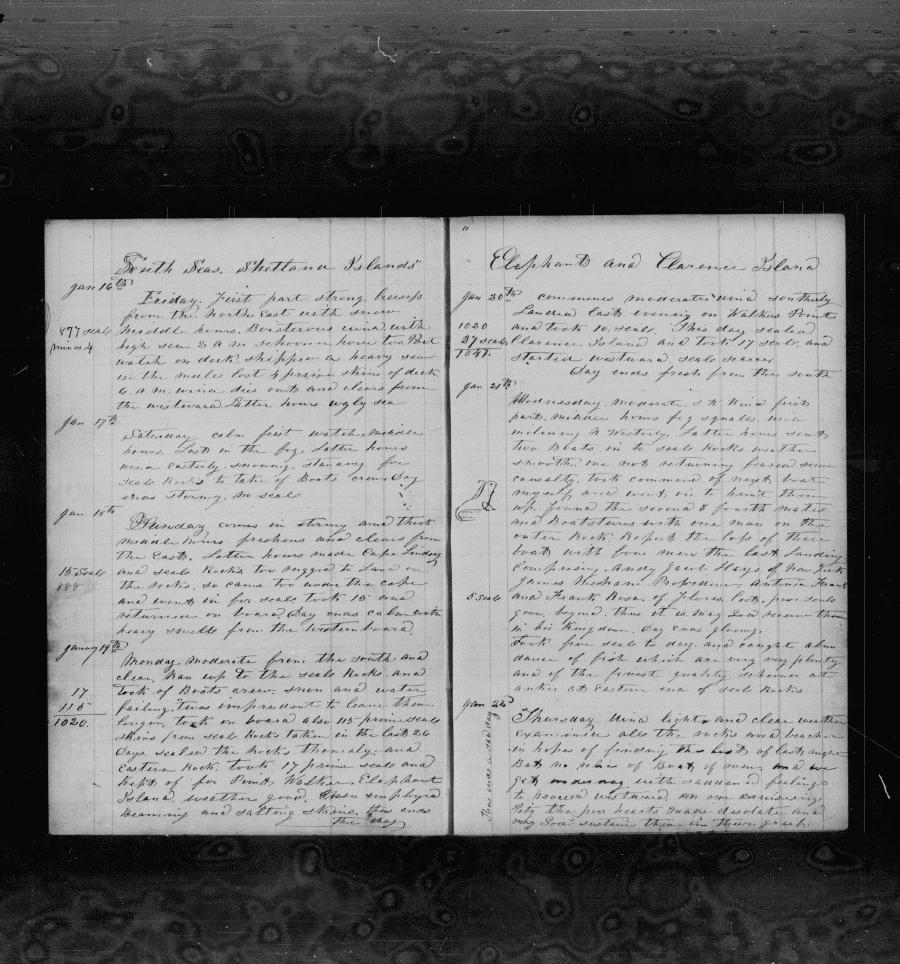 South Seas. Shetland Islands"
Jan 16th
Friday. First part strong breeses
from the North East with snow
middle hours. Boisterous wind with
877 seals
high sea 2 A m. schooner hove too Port
minus 4
watch on deck shipped a heavy sea
in the lost 4 prime skins of deck
6. A m. wind dies out and clears from
the westward. Latter hours ugly sea
Jan 17th
Saturday calm first watch, middle
hours. Lost in the fog. Latter hours
wind Easterly. snowing. standing for
seal Rocks to take of Boats crew Day
ends stormy. no seals
Jan 18th
Sunday comes in strong and thick
middle hours freshens and clears from
the East. Latter hours made Cape Lindsay
15 Seals
and seal Rocks too rugged to Land on
888
the rocks. so came too under the cape
and went in for seals took 15 and
returned on board. Day ends calm with
heavy swells from the Western board.
January 19th
Monday. moderate from the south and
clear. Ran up to the seal Rocks. and
17
took of Boats crew. snow and water
115
failing. 'twas imprudent to leave them
1020.
longer, took on board also 115 prime seal
skins from seal Rocks taken in the last 26
days. sealed the Rocks thoroly. and
Eastern Rock. took 17 prime seals and
kept of for Point Walker. Elephant
Island. weather good. employed
Beaming and salting skins. thus ends
the day
"
Elephant and Clarence Island
Jan 20th
commences moderate wind southerly
Landed last evening on Walkers Point
1020
and took 10. seals. This day sealed
27 seals
Clarence Island and took 17 seals. and
1047.
started westward seals scarce
Day ends fresh from the south
Jan 21st
Wednesday, moderate. wind first
part. middle hours fog squals. wind
Westerly. Latter hours sent
two Boats in to seal Rocks weather
smooth. one not returning feared some
casualty. took command of next boat
myself and went in to hunt them
up. found the second & fourth mates
and Boatsteerers with one man on the
outer Rock. Report the loss of there
boat with four men the last Landing
Comprising. Andy Jacob Hays. of New York
James Antone Frank
5 seals
and Frank Rosa. of Flores. lost. poor souls
gone beyond. thus it is. May God receive them
in his Kingdom. Day ends gloomy.
Took five seals to day. and caught abun
dance of fish which are very very plenty
and of the finest quality. schooner at
anker at Eastern end of seal Rocks
Jan 22d
Thursday Wind light. and clear weather
Examined all the rocks and beaches
in hopes of finding the lost of last night
But no of Boat of men, and we
get with saddened feelings
to proceed westward.
Pity the poor hearts made disolate and
may God sustain them in there grief.
This was a sad day